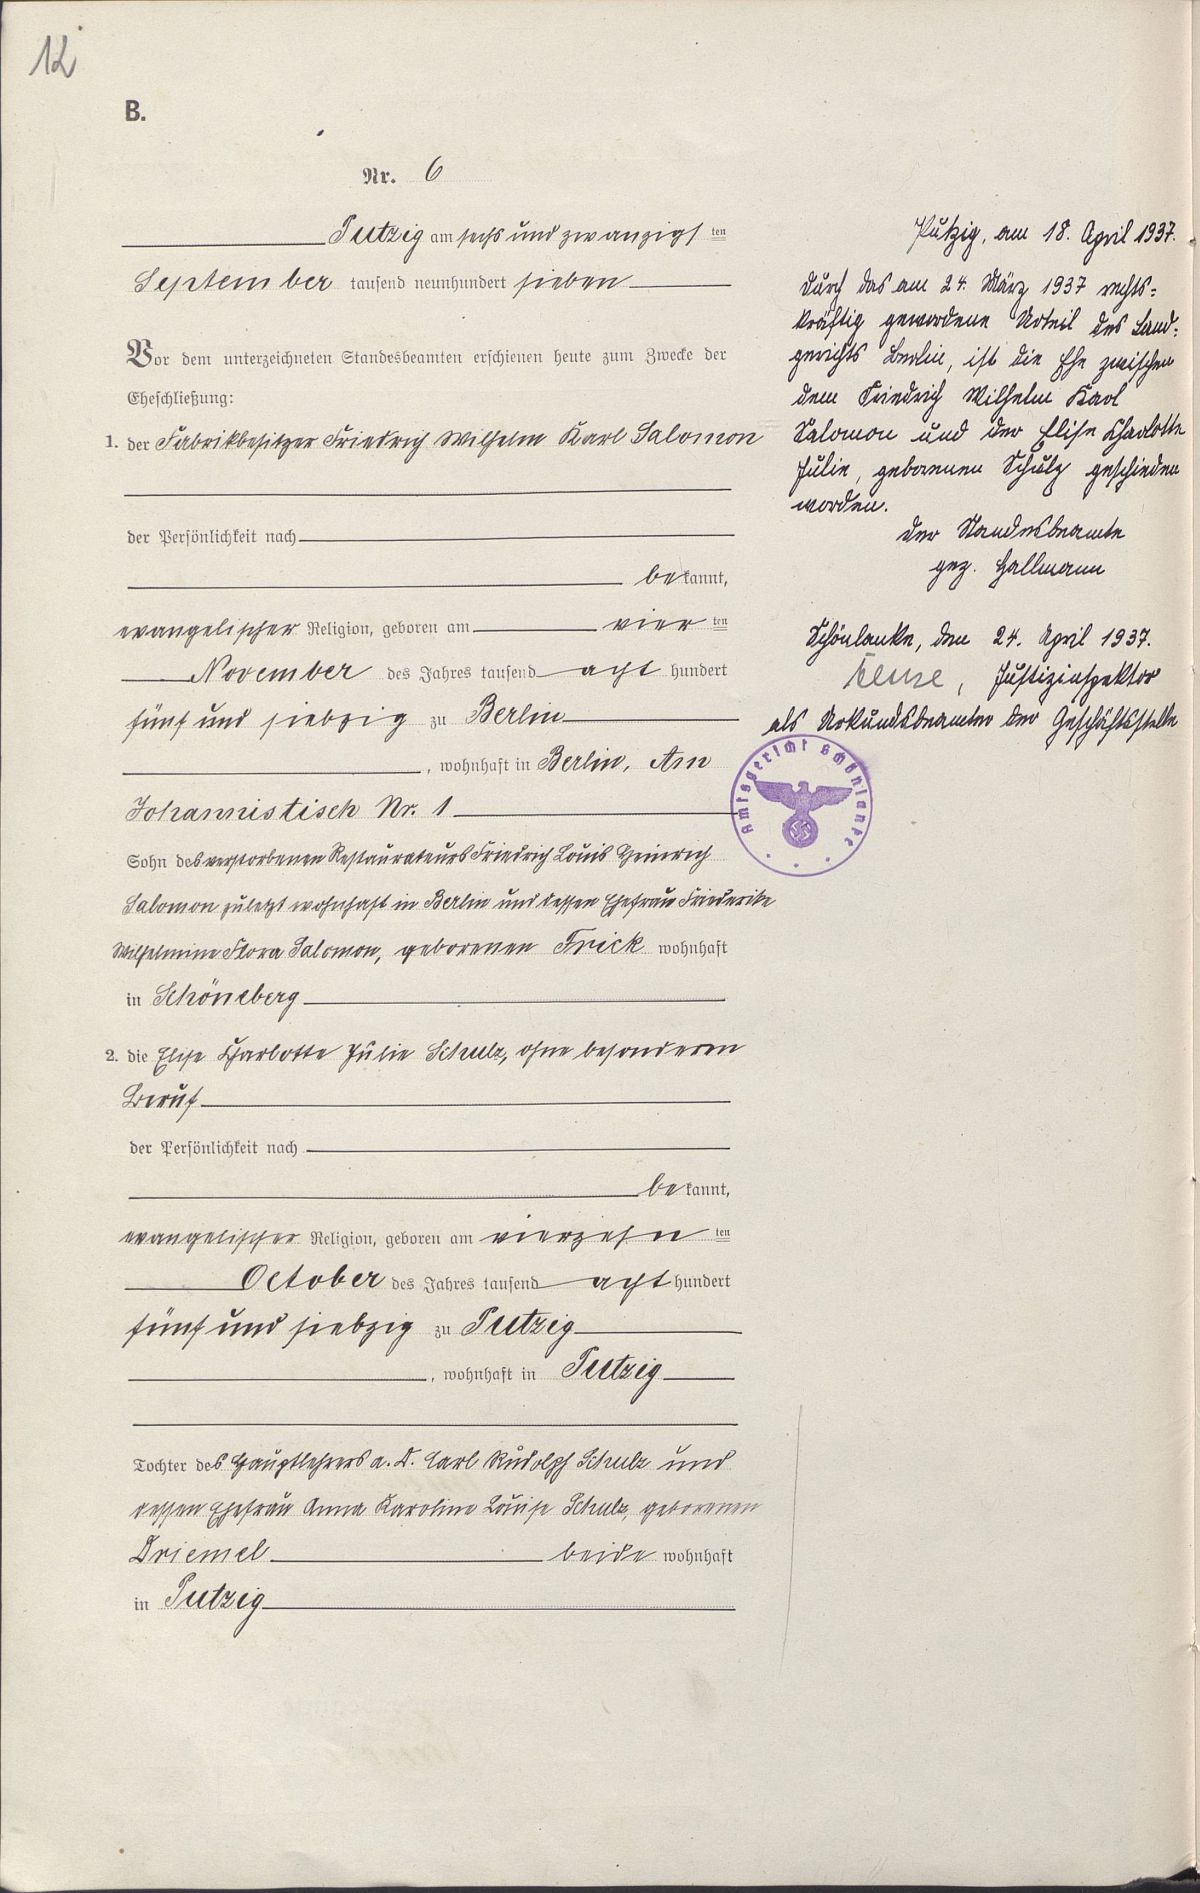 12
B.
Nr. 6
Putzig am sechs und zwanzigs ten
September tausend neunhundert sieben
Vor dem unterzeichneten Standesbeamten erschienen heute zum Zwecke der
Eheschließung:
1. der Fabrikbesitzer Friedrich Wilhelm Karl Salomon
der Persönlichkeit nach
bekannt,
evangelischer Religion, geboren am vier ten
November des Jahres tausend acht hundert
fünf und siebzig zu Berlin
, wohnhaft in Berlin, Am
Johannistisch Nr. 1
Sohn des verstorbenen Restaurateurs Friedrich Louis Heinrich
Salomon zuletzt wohnhaft in Berlin und dessen Ehefrau Friederike
Wilhelmine Flora Salomon, geborenen Frick wohnhaft
in Schöneberg
2. die Elise Charlotte Julie Schulz, ohne besonderen
Beruf
der Persönlichkeit nach
bekannt,
evangelischer Religion, geboren am vierzehn ten
October des Jahres tausend acht hundert
fünf und siebzig zu Putzig
, wohnhaft in Putzig
Tochter des Hauptlehrers a. D. Carl Rudolph Schulz und
dessen Ehefrau Anna Karoline Louise Schulz, geborenen
Driemel beide wohnhaft
in Putzig
Putzig, am 18. April 1937.
Durch das am 24. März 1937 rechts=
kräftig gewordene Urteil des Land=
gerichts Berlin, ist die Ehe zwischen
dem Friedrich Wilhelm Karl
Salomon und der Elise Charlotte
Julie, geborenen Schulz geschieden
worden.
Der Standesbeamte
gez. Hallmann
Schönlanke, den 24. April 1937.
, Justizinspektor
als Urkundsbeamter der Geschäftsstelle
Amtsgericht Schönlanke